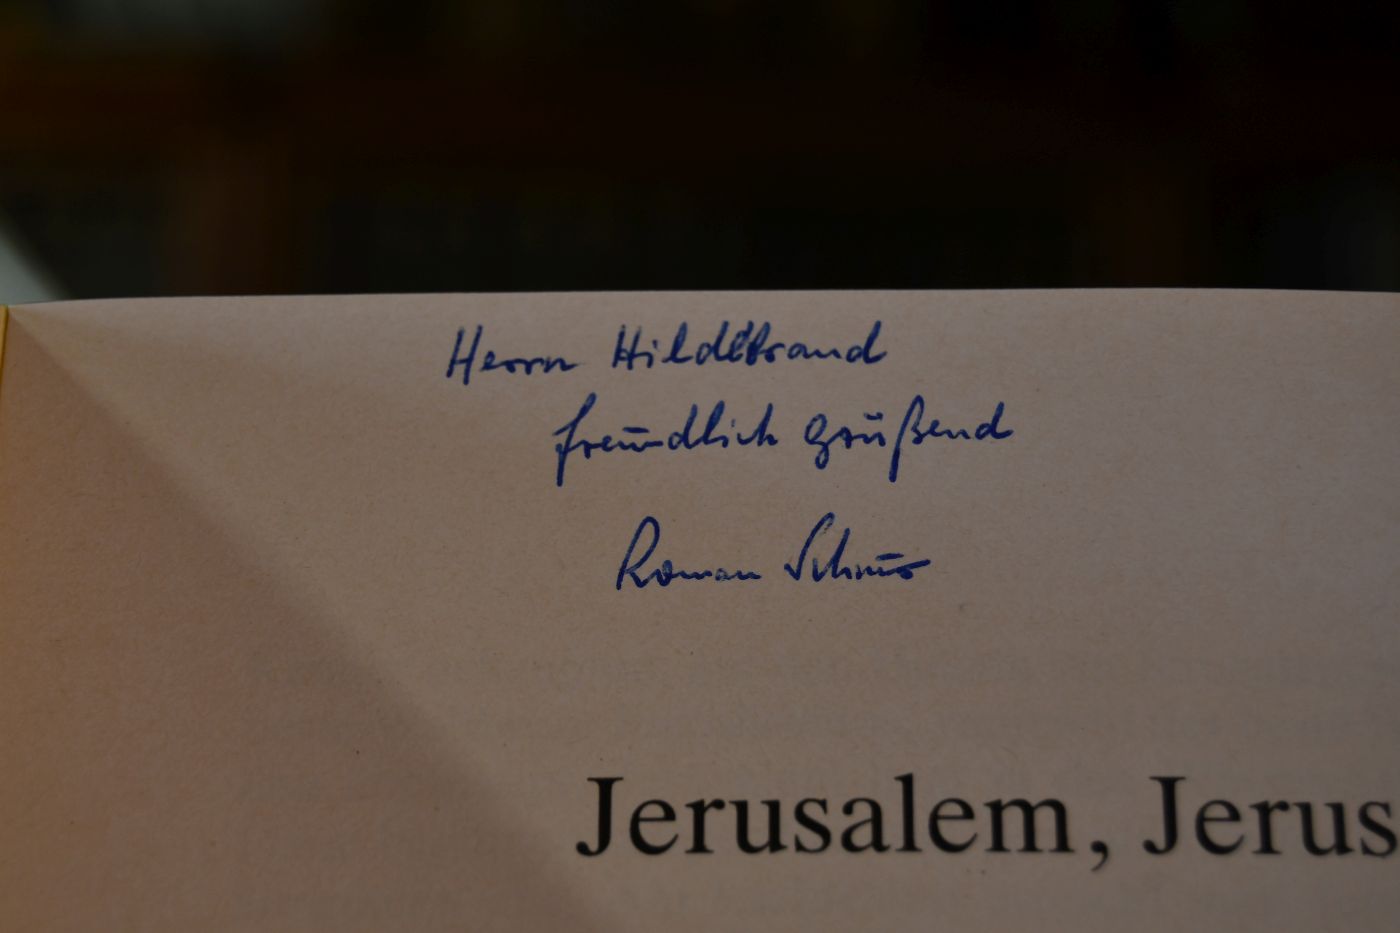 Herrn Hildebrand
freundlich grüßend
Roman Schnur
Jerusalem, Jerus